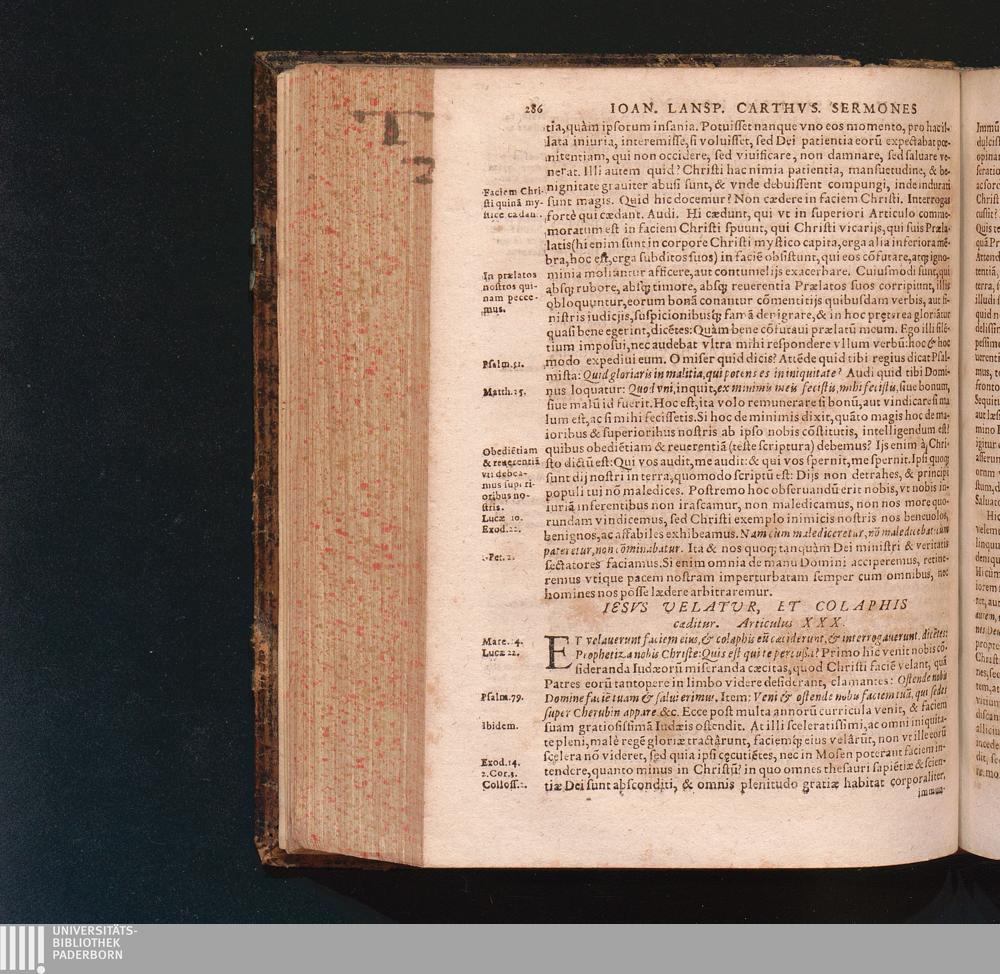 T
2
286 IOAN. LANSP. CARTHVS. SERMONES
tia, quàm ipsorum insania. Potuisset nanque vno eos momento, pro hac il-
lata iniuria, interemisse, si voluisset, sed Dei patientia eorū expectabat pœ-
nitentiam, qui non occidere, sed viuificare, non damnare, sed saluare ve-
nerat. Illi autem quid? Christi hac nimia patientia, mansuetudine, & be-
nignitate grauiter abusi sunt, & vnde debuissent compungi, inde indurati
sunt magis. Quid hic docemur? Non cædere in faciem Christi. Interrogas
fortè qui cædant. Audi. Hi cædunt, qui vt in superiori Articulo comme-
moratum est in faciem Christi spuunt, qui Christi vicarijs, qui suis Præla-
latis (hi enim sunt in corpore Christi mystico capita, erga alia inferiora mē-
bra, hoc est, erga subditos suos) in faciē obsistunt, qui eos cōfutare, atq; igno-
minia moliantur afficere, aut contumelijs exacerbare. Cuiusmodi sunt, qui
absq; rubore, absq; timore, absq; reuerentia Prælatos suos corripiunt, illis
obloquuntur, eorum bonā conantur cōmentitijs quibusdam verbis, aut si-
nistris iudicijs, suspicionibusq; famā denigrare, & in hoc pręterea gloriātur
quasi bene egerint, dicētes: Quàm bene cōfutaui prælatū meum. Ego illi silē-
tium imposui, nec audebat vltra mihi respondere vllum verbū: hoc & hoc
modo expediui eum. O miser quid dicis? Attēde quid tibi regius dicat Psal-
mista: Quid gloriaris in malitia, qui potens es in iniquitate? Audi quid tibi Domi-
nus loquatur: Quod vni, inquit, ex minimis meis fecistis, mihi fecistis, siue bonum,
siue malū id fuerit. Hoc est, ita volo remunerare si bonū, aut vindicare si ma
lum est, ac si mihi fecissetis. Si hoc de minimis dixit, quāto magis hoc de ma-
ioribus & superioribus nostris ab ipso nobis cōstitutis, intelligendum est?
quibus obediētiam & reuerentiā (teste scriptura) debemus? Ijs enim à Chri-
sto dictū est: Qui vos audit, me audit: & qui vos spernit, me spernit. Ipsi quoq;
sunt dij nostri in terra, quomodo scriptū est: Dijs non detrahes, & principi
populi tui nō maledices. Postremo hoc obseruandū erit nobis, vt nobis in-
iuriā inferentibus non irascamur, non maledicamus, non nos more quo-
rundam vindicemus, sed Christi exemplo inimicis nostris nos beneuolos,
benignos, ac affabiles exhibeamus. Nam cum malediceretur, nō maledicebat: cum
pateretur, non cōminabatur. Ita & nos quoq; tanquàm Dei ministri & veritatis
sectatores faciamus. Si enim omnia de manu Domini acciperemus, retine-
remus vtique pacem nostram imperturbatam semper cum omnibus, nec
homines nos posse lædere arbitraremur.
IESVS VELATVR, ET COLAPHIS
cæditur. Articulus XXX.
ET velauerunt faciem eius, & colaphis eū ceciderunt, & interrogauerunt, dicētes:
Prophetiza nobis Christe: Quis est qui te percußit? Primo hîc venit nobis cō-
sideranda Iudæorū miseranda cæcitas, quod Christi faciē velant, quā
Patres eorū tantopere in limbo videre desiderant, clamantes: Ostende nobis
Domine faciē tuam & salui erimus. Item: Veni & ostende nobis faciem tuā, qui sedes
super Cherubin appare &c. Ecce post multa annorū curricula venit, & faciem
suam gratiosissimā Iudæis ostendit. At illi sceleratissimi, ac omni iniquita-
te pleni, malè regē gloriæ tractârunt, faciemq; eius velârūt, non vt ille eorū
scelera nō videret, sed quia ipsi cęcutiētes, nec in Mosen poterant faciem in-
tendere, quanto minus in Christū? in quo omnes thesauri sapiētiæ & scien-
tiæ Dei sunt absconditi, & omnis plenitudo gratiæ habitat corporaliter,
immun-
Faciem Chri-
sti quinā my-
stice cædan.
In prælatos
nostros qui-
nam pecce-
mus.
Psalm.51.
Matth.25.
Obediētiam
& reuerentiā
vti debea-
mus supe ri-
oribus no-
stris.
Lucæ 10.
Exod.22.
1.Pet.2.
Marc.14.
Lucæ 22.
Psalm.79.
Ibidem.
Exod.14.
2.Cor.3.
Coloss.2.
UNIVERSITÄTS-
BIBLIOTHEK
PADERBORN